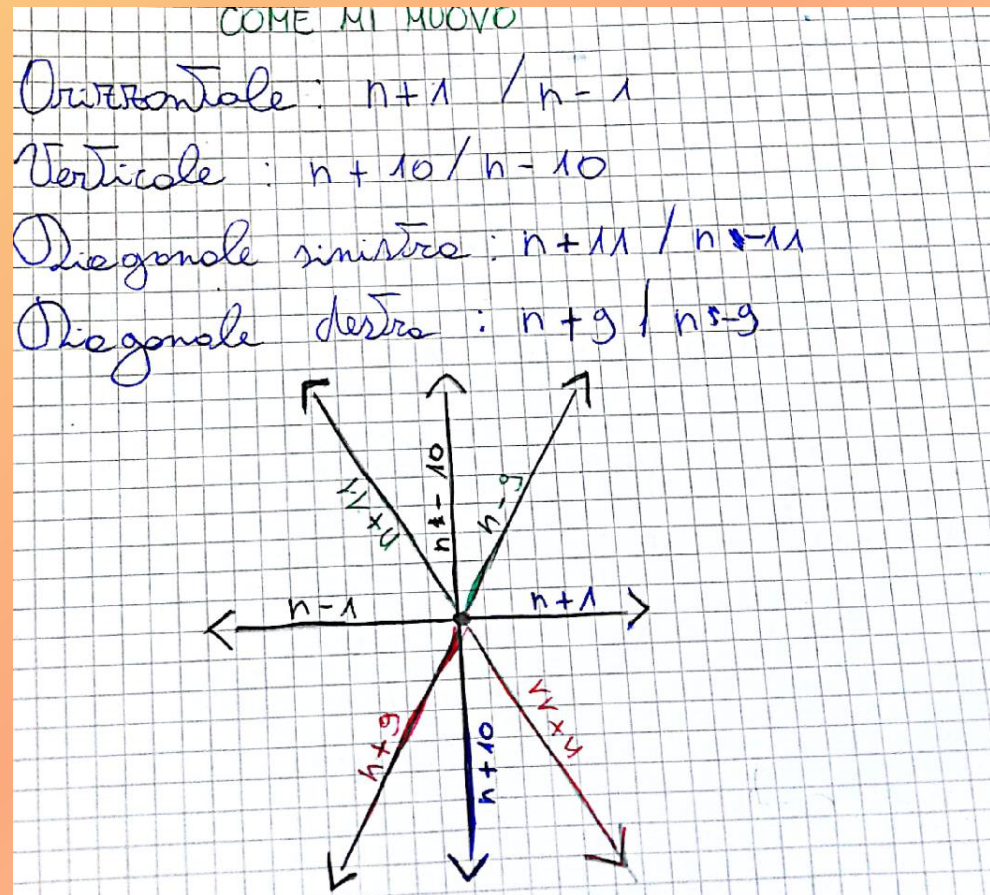 COME MI MUOVO
Orizzontale : n+1 / n-1
Verticale : n + 10 / n - 10
Diagonale sinistra : n + 11 / n -11
Diagonale destra : n + 9 / n -9
n+11
n - 10
n-9
n-1
n+1
n+9
n+10
n+11